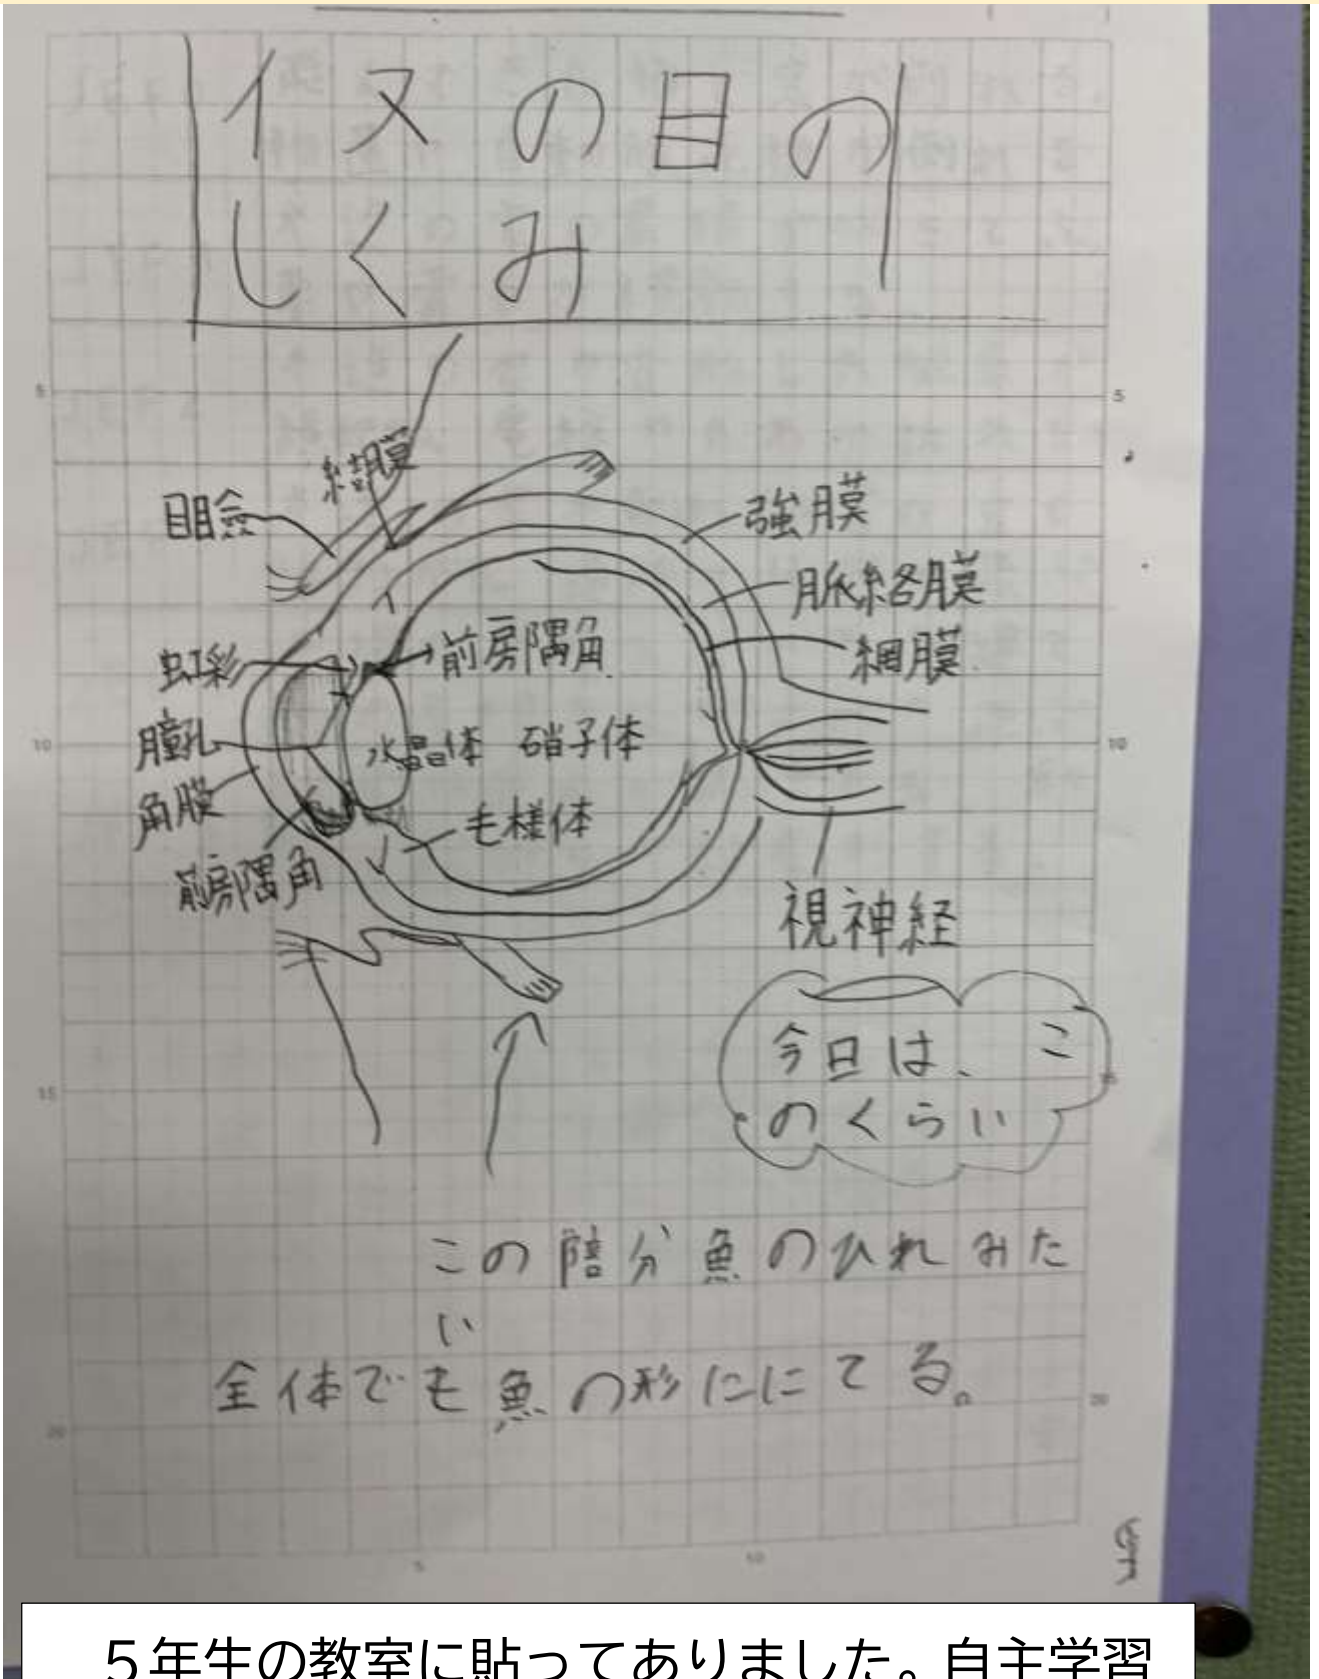 イヌの目の
しくみ
結膜
目瞼
強膜
脈絡膜
網膜
虹彩
前房隅角
瞳孔
水晶体 硝子体
角膜
毛様体
前房隅角
視神経
今日は、こ
のくらい
この部分魚のひれみた
い
全体でも魚の形ににてる。
5
5
10
10
15
20
20
5
10
５年生の教室に貼ってありました。自主学習